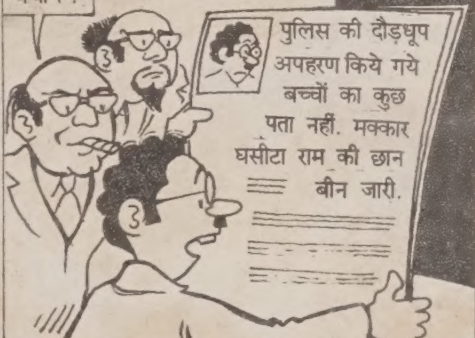 पुलिस की दौड़धूप
अपहरण किये गये
बच्चों का कुछ
पता नहीं. मक्कार
घसीटा राम की छान
बीन जारी.